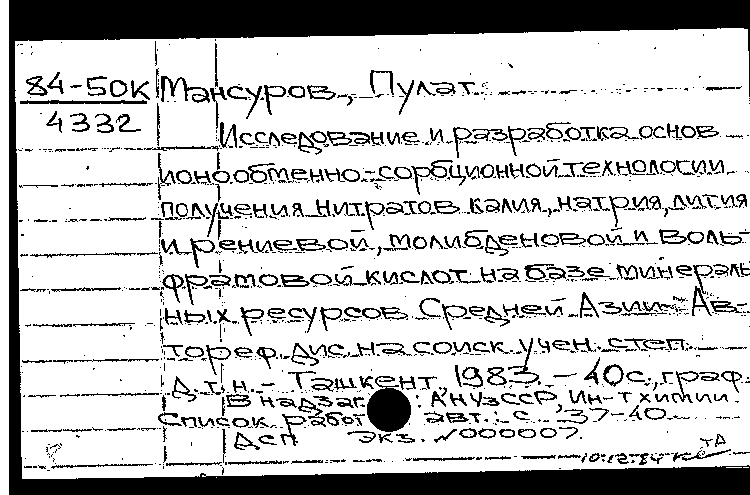 84-50К Мансуров, Пулат.
4332
Исследование и разработка основ
ионообменно-сорбционной технологии
получения нитратов калия, натрия, лития
и рениевой, молибденовой и воль-
фрамовой кислот на базе минераль
ных ресурсов Средней Азии: Ав-
тореф. дис. на соиск. учен. степ.
д.т.н. - Ташкент, 1983. - 40 с., граф.
В надзаг.: АН УзССР, Ин-т химии.
Список работ авт.: с. 37-40.
ДСП Экз. №000007.
10.12.84